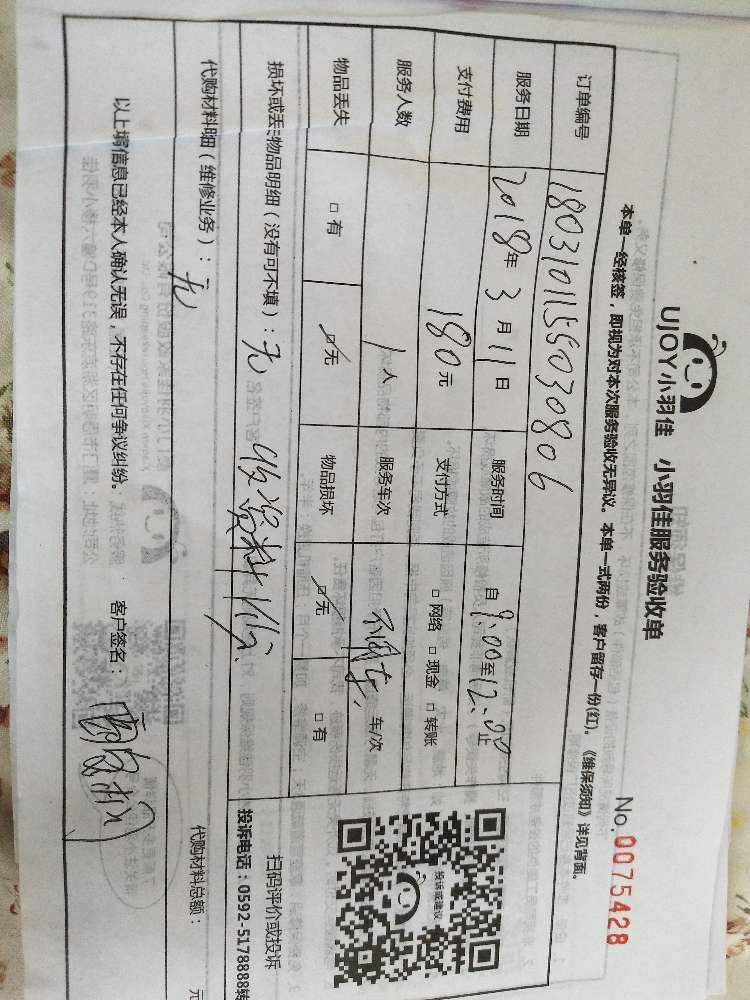 UJOY小羽佳 小羽佳服务验收单
No.0075428
本单一经核签，即视为对本次服务验收无异议。本单一式两份，客户留存一份(红)。《维保须知》详见背面。
订单编号 1803101155030806
服务日期 2018年3月11日 服务时间 自9:00至12:00止
支付费用 180元 支付方式 □网络 □现金 □转账
服务人数 1人 服务车次 不用车 车/次
物品丢失 □有 □无 物品损坏 □无 □有
损坏或丢失物品明细（没有可不填）：无
收资料1份
代购材料明细（维修业务）：无
代购材料总额： 元
投诉或建议
扫码评价或投诉
投诉电话：0592-5178888转
以上填信息已经本人确认无误，不存在任何争议纠纷。 客户签名：